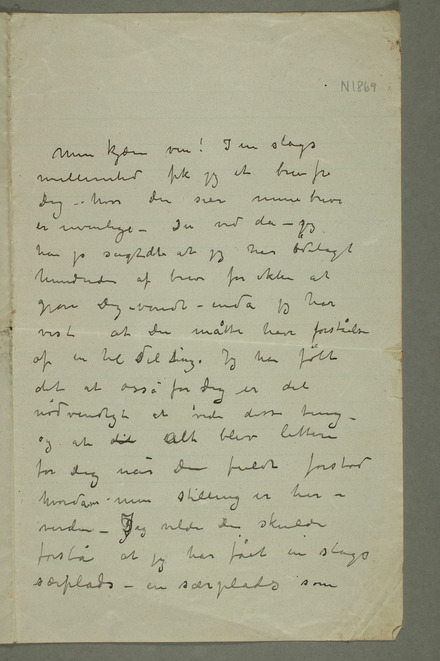 N1869
Min kjære ven! I en slags
mellemtid fik jeg et brev fra
Dig – hvor Du sier mine breve
er uvenlige – Du ved da – jeg
har jo sagt dette at jeg har ødelagt
hundreder af breve for ikke at
gjøre Dig vondt – enda jeg har
vist at Du måtte have forståelse
af en hel del ting. Jeg har følt
det at også for Dig er det
nødvendigt at vide disse ting –
og at alt blev lettere
for Dig når Du fuldt forstod
hvordan min stilling er her i
verden – Jeg vilde Du skulde
forstå at jeg har fået en slags
særplads – en særplads som